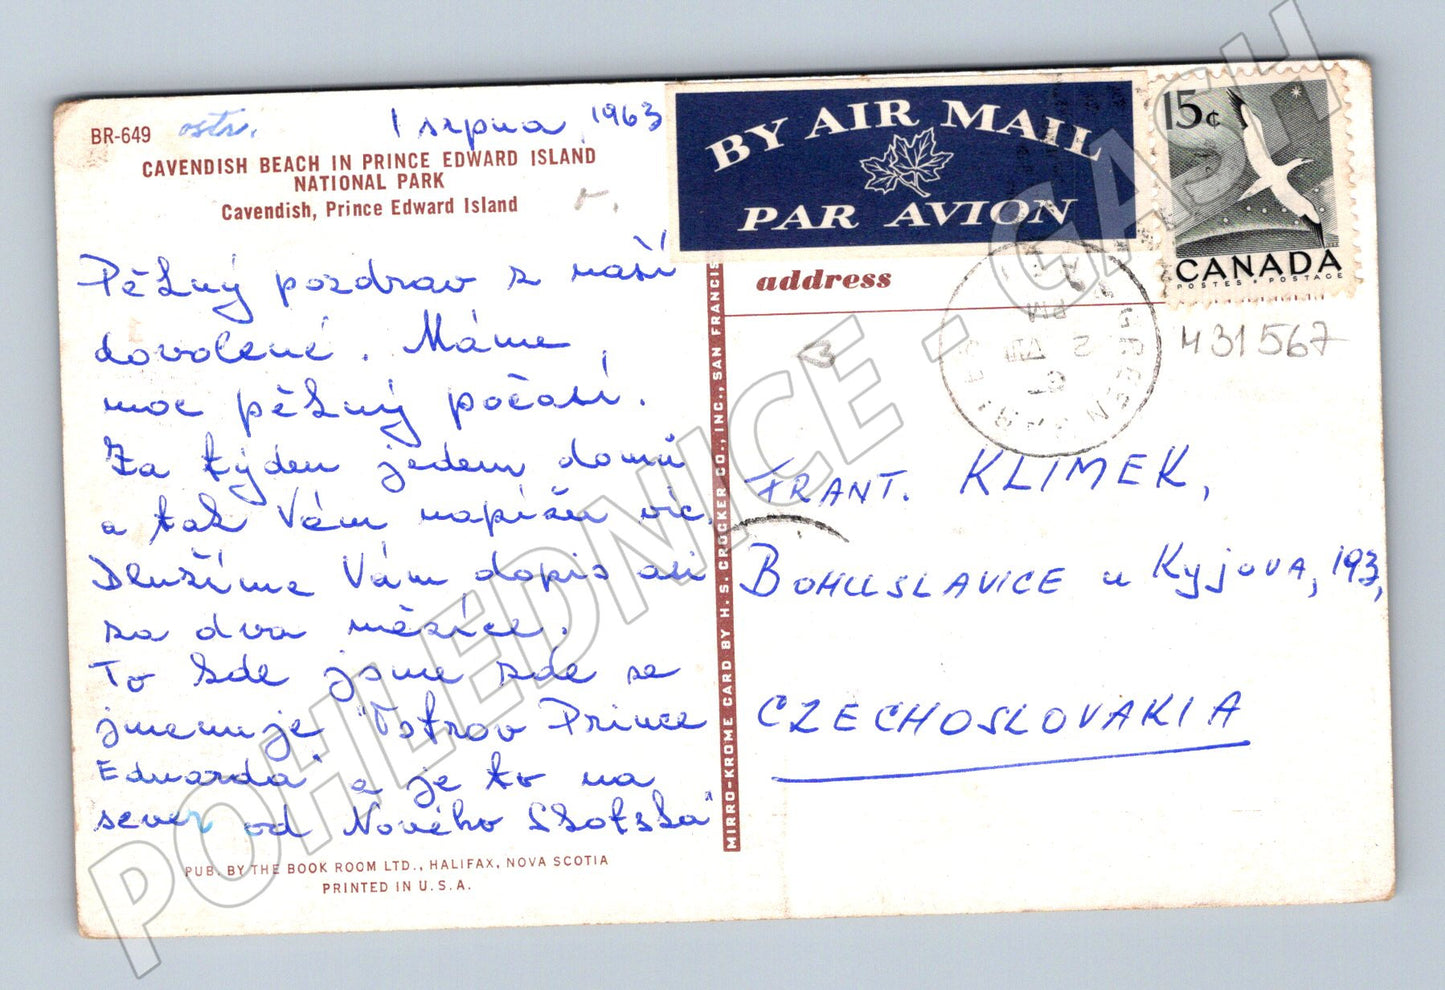 BR-649
1 srpna, 1963
CAVENDISH BEACH IN PRINCE EDWARD ISLAND
NATIONAL PARK
Cavendish, Prince Edward Island
Pěkný pozdrav z naší
dovolené. Máme
moc pěkný počasí.
Za týden jedem domů
a tak Vám napíšu víc.
Dlužíme Vám dopis asi
za dva měsíce.
To kde jsme zde se
jmenuje "Ostrov Prince
Eduarda" a je to na
sever od Nového Skotska
PUB. BY THE BOOK ROOM LTD., HALIFAX, NOVA SCOTIA
PRINTED IN U.S.A.
MIRRO-KROME CARD BY H. S. CROCKER CO., INC., SAN FRANCIS
BY AIR MAIL
PAR AVION
15¢
CANADA
POSTES • POSTAGE
address
431567
FRANT. KLIMEK,
BOHUSLAVICE u Kyjova, 193,
CZECHOSLOVAKIA
POHLEDNICE - GASH